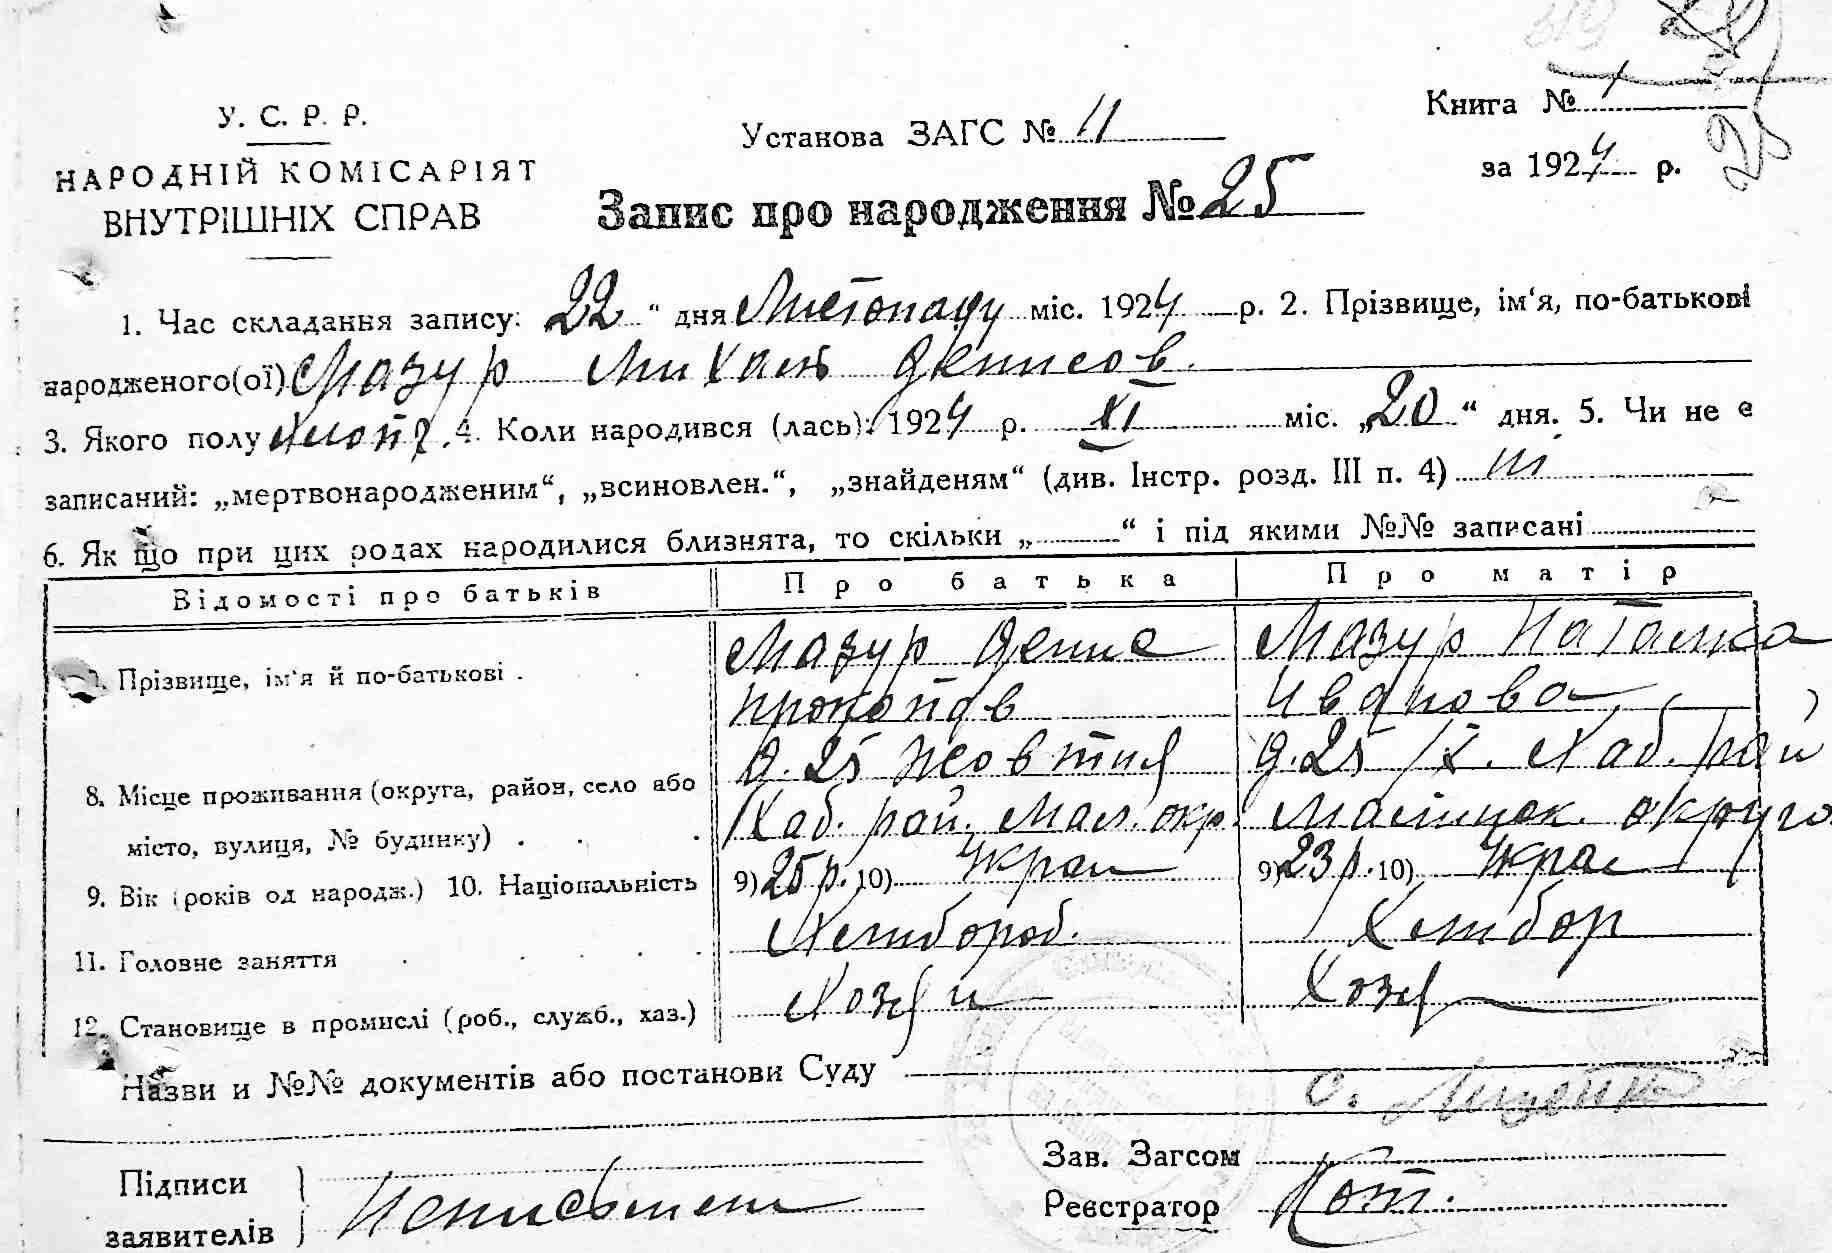 У. С. Р. Р.
НАРОДНІЙ КОМІСАРІЯТ
ВНУТРІШНІХ СПРАВ
Установа ЗАГС № 11
Книга № 1
за 1924 р.
25
Запис про народження № 25
1. Час складання запису: 22 " дня Листопаду міс. 1924 р. 2. Прізвище, ім'я, по-батькові
народженого(ої) Мазур Михаль Денисов.
3. Якого полу Хлопч. 4. Коли народився (лась): 1924 р. XI міс. „20" дня. 5. Чи не є
записаний: „мертвонародженим“, „всиновлен.“, „знайденям“ (див. Інстр. розд. III п. 4) ні
6. Як що при цих родах народилися близнята, то скільки „ “ і під якими №№ записані
Відомості про батьків Про батька Про матір
7. Прізвище, ім'я й по-батькові . Мазур Денис Мазур Наталка
Прокопов Иванова
8. Місце проживання (округа, район, село або д. 25 Жовтня д. 25 /X. Хаб. рай
місто, вулиця, № будинку) . Хаб. рай. Мал. окр. Малинск. округа
9. Вік (років од народж.) 10. Національність 9) 25 р. 10) Украі 9) 23 р. 10) Украі
11. Головне заняття Хлибороб. Хлибор
12. Становище в промислі (роб., служб., хаз.) Хозяи Хозя
Назви и №№ документів або постанови Суду
С.
Підписи
заявителів Неписьмени
Зав. Загсом
Реєстратор Кот.